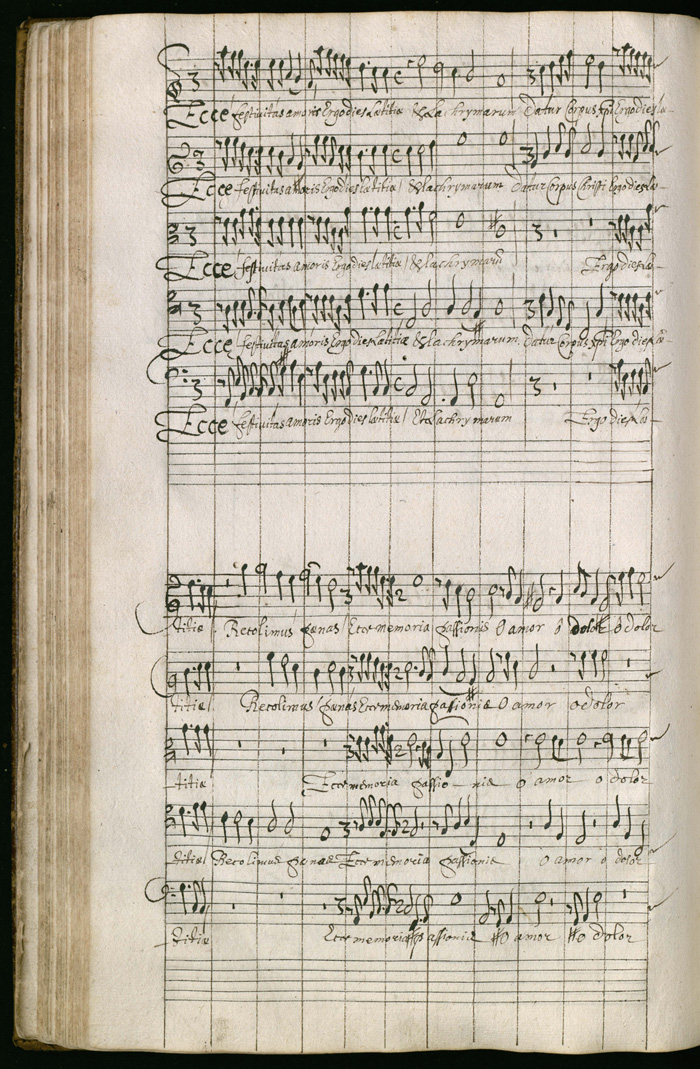 Ecce festivitas amoris Ergo dies lætitiæ & lachrymarum Datur Corpus Xpi Ergo dies læ-
Ecce festivitas amoris Ergo dies lætitiæ / & lachrymarum Datur Corpus Christi Ergo dies læ-
Ecce festivitas amoris Ergo dies lætitiæ / & lachrymarũ Ergo dies læ-
Ecce festivitas amoris Ergo dies lætitiæ & lachrymarum. Datur Corpus Xpi Ergo dies læ-
Ecce festivitas amoris Ergo dies lætitiæ / Et lachrymarum Ergo dies læ-
titiæ / Recolimus pænas / Ecce memoria passionis O amor ô dolor ô dolor
titiæ / Recolimus / pænas Ecce memoria passioniæ O amor o dolor
titiæ Ecce memoria passio - niæ o amor o dolor
titiæ / Recolimus pænas Ecce memoria passioniæ o amor o dolor
titiæ Ecce memoria passioniæ o amor o dolor